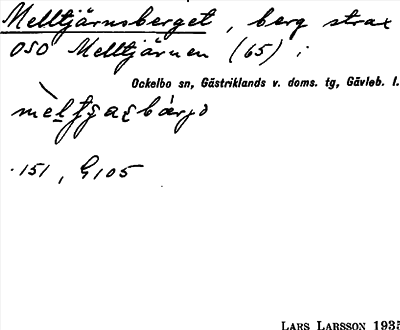 Melltjärnsberget, berg strax
OSO Melltjärnen (65) i
Ockelbo sn, Gästriklands v. doms. tg, Gävleb. l.
.151, G105
LARS LARSSON 1935